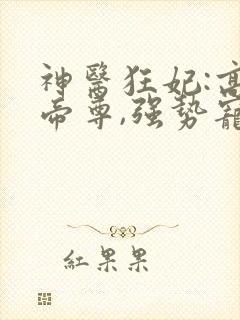 神醫狂妃:高
帝尊,強勢寵
紅果果